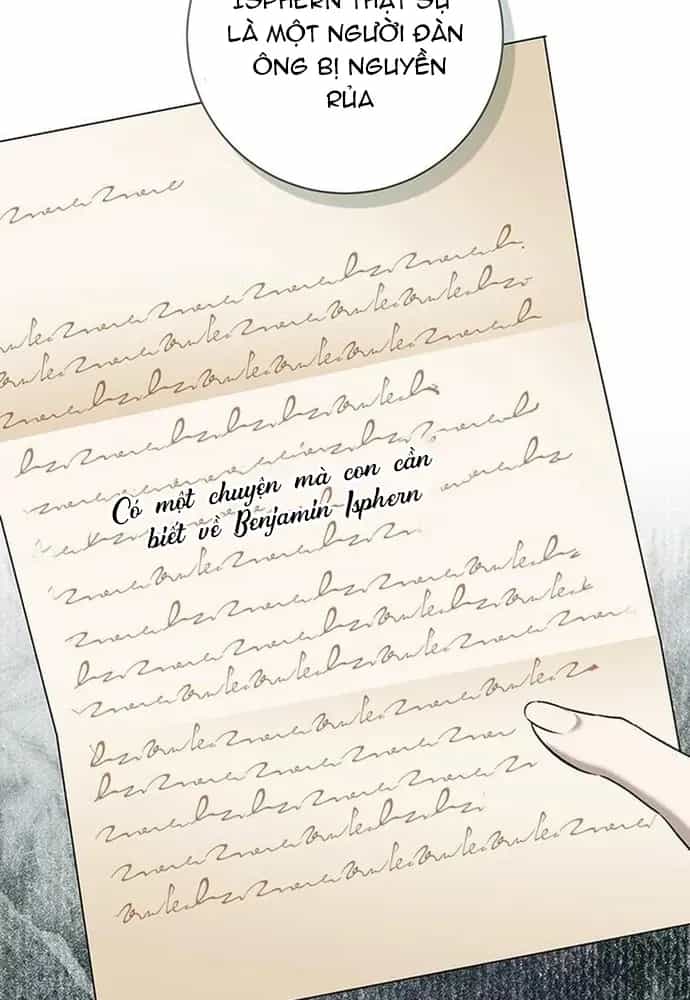 ISPHERN THẬT SỰ
LÀ MỘT NGƯỜI ĐÀN
ÔNG BỊ NGUYỀN
RỦA
Có một chuyện mà con cần
biết về Benjamin Isphern